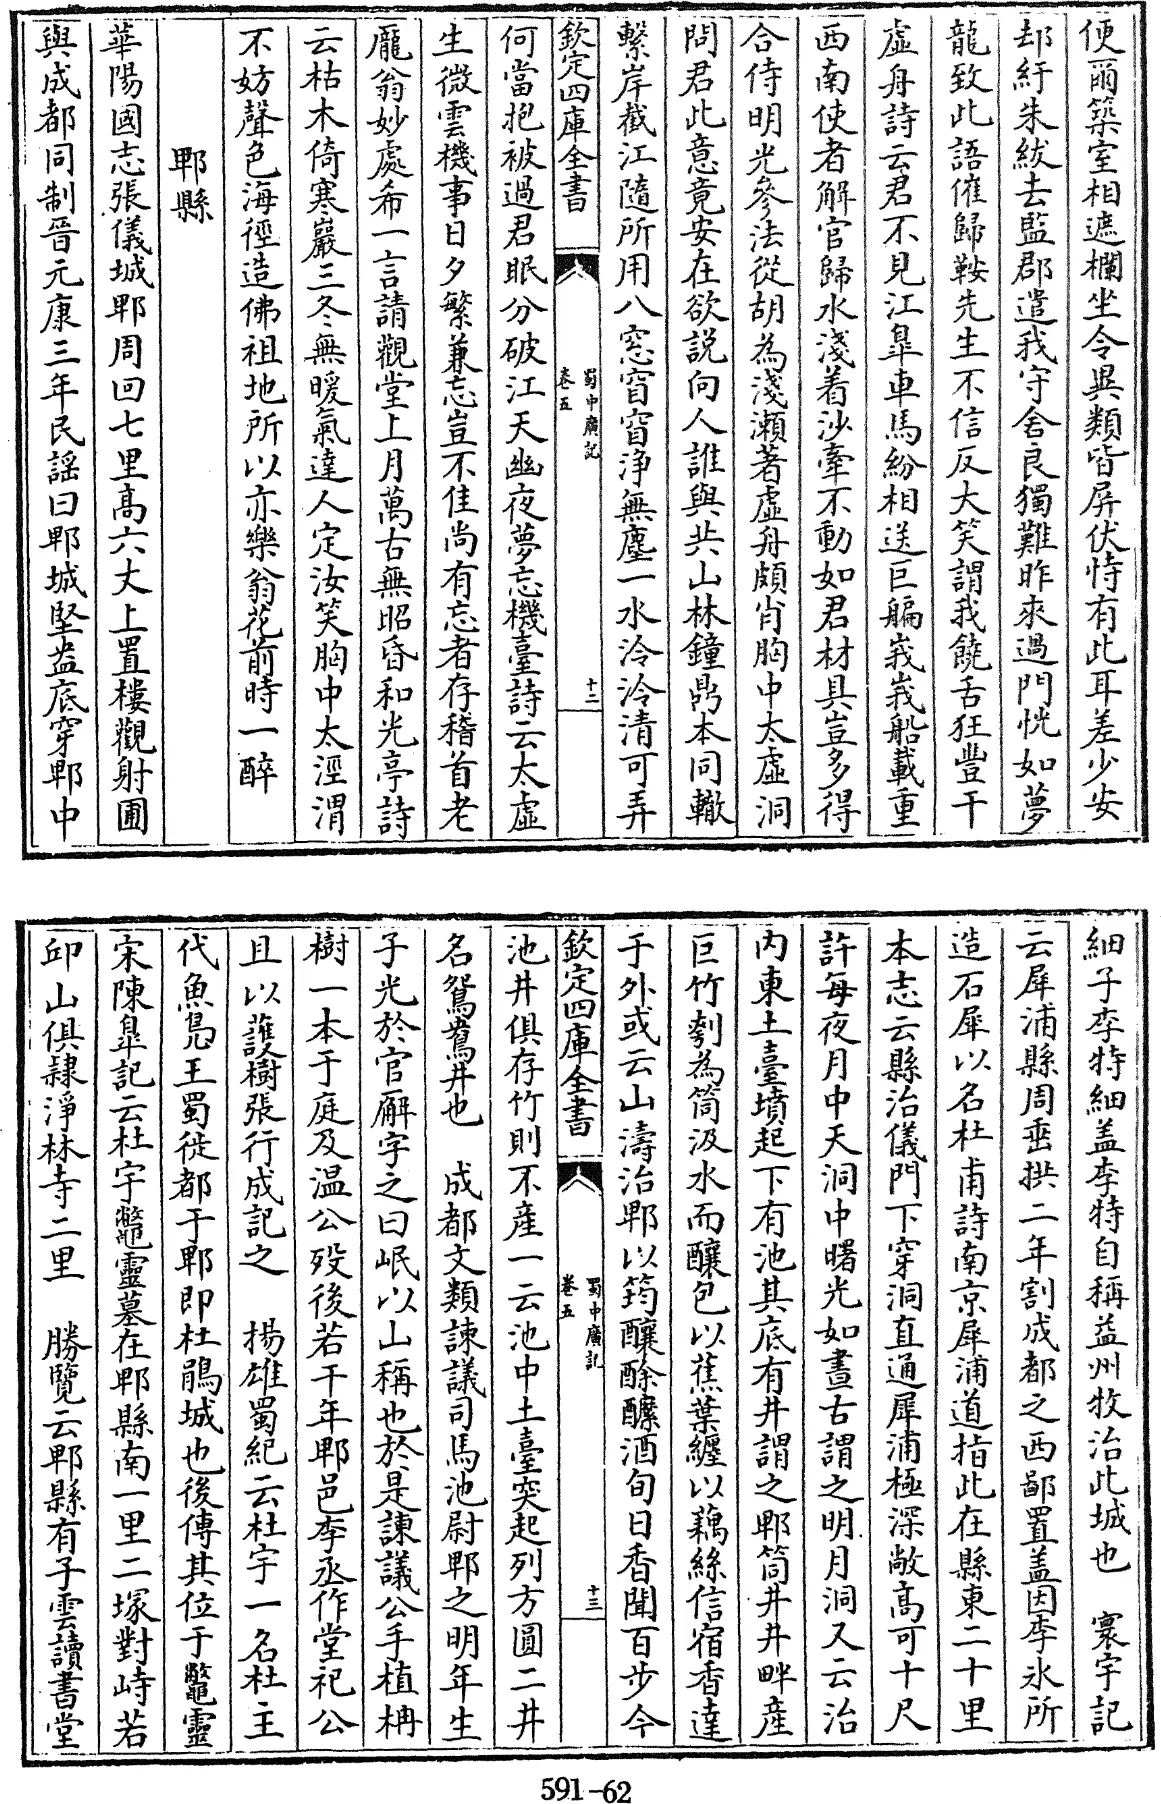 便爾築室相遮欄坐令異類皆屏伏恃有此耳差少安
却紆朱紱去監郡遣我守舍良獨難昨來過門恍如夢
龍致此語催歸鞍先生不信反大笑謂我饒舌狂豐干
虛舟詩云君不見江臯車馬紛相送巨艑峩峩船載重
西南使者解官歸水淺着沙牽不動如君材具豈多得
合侍明光參法從胡為淺瀨著虛舟頗肖胸中太虛洞
問君此意竟安在欲説向人誰與共山林鐘鼎本同轍
繫岸截江隨所用八窓窅窅淨無塵一水泠泠清可弄
欽定四庫全書
蜀中廣記
卷五
十二
何當抱被過君眠分破江天幽夜夢忘機臺詩云太虛
生微雲機事日夕繁兼忘豈不佳尚有忘者存稽首老
龐翁妙處希一言請觀堂上月萬古無昭昏和光亭詩
云枯木倚寒巖三冬無暖氣達人定汝笑胸中太涇渭
不妨聲色海徑造佛祖地所以亦樂翁花前時一醉
郫縣
華陽國志張儀城郫周回七里髙六丈上置樓觀射圃
與成都同制晉元康三年民謡曰郫城堅盎底穿郫中
細子李特細盖李特自稱益州牧治此城也　寰宇記
云犀浦縣周垂拱二年割成都之西鄙置盖因李氷所
造石犀以名杜甫詩南京犀浦道指此在縣東二十里
本志云縣治儀門下穿洞直通犀浦極深敞髙可十尺
許每夜月中天洞中曙光如晝古謂之明月洞又云治
内東土臺墳起下有池其底有井謂之郫筒井井畔産
巨竹刳為筒汲水而釀包以蕉葉纏以藕絲信宿香達
于外或云山濤治郫以筠釀酴醾酒旬日香聞百步今
欽定四庫全書
蜀中廣記
卷五
十三
池井俱存竹則不産一云池中土臺突起列方圓二井
名鴛鴦井也　成都文類諫議司馬池尉郫之明年生
子光於官廨字之曰岷以山稱也於是諫議公手植柟
樹一本于庭及温公殁後若干年郫邑李丞作堂祀公
且以護樹張行成記之　揚雄蜀紀云杜宇一名杜主
代魚鳧王蜀徙都于郫即杜鵑城也後傳其位于鼈靈
宋陳臯記云杜宇鼈靈墓在郫縣南一里二塚對峙若
邱山俱隷淨林寺二里　勝覽云郫縣有子雲讀書堂
591-62